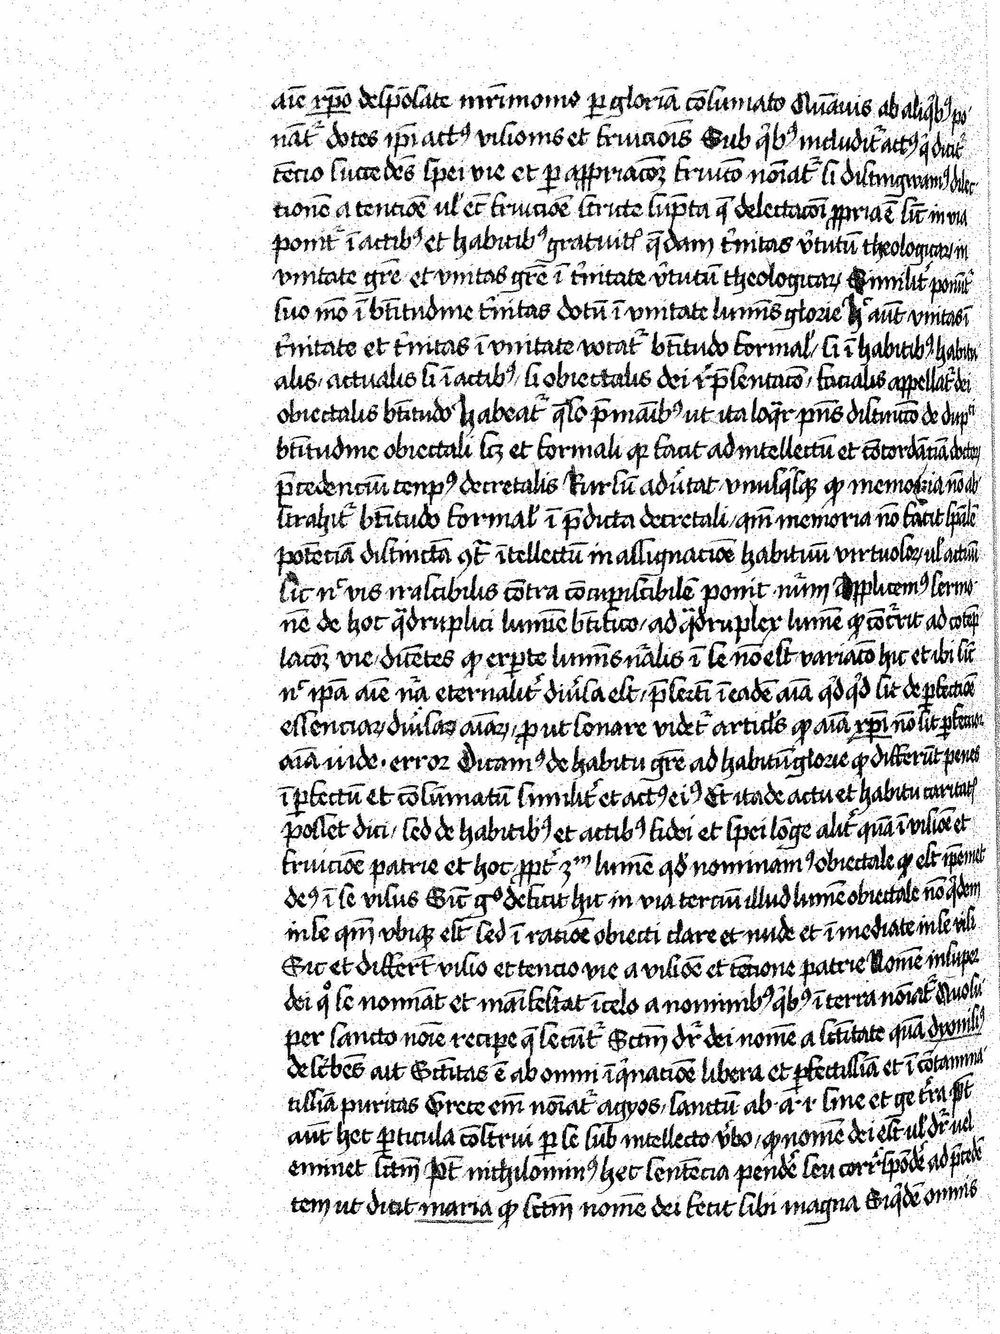 aīe xp̄o despōsate mr̄imonio ꝑ gloriā cōsūmato Quāuis ab aliqͥbꝰ po
nāt᷑ dotes ip̄i actꝰ visionis et fruiciōis Sub qͥbꝰ includit᷑ actꝰ qͥ dicit᷑
tēcio succedēs spei vie et ꝑ appriacōꝫ fruicō noīat᷑ si distingwamꝰ dilec
tionē a tencioē ul᷑ ec̄ fruicioē stricte sūpta q̄ delectacōi ꝓpria ē sic̄ in via
ponit᷑ ī actibꝰ et habitibꝰ gratuitꝭ q̄dam t᷑nitas v᷑tutū theologicaꝝ in
vnitate gr̄e et vnitas gr̄e ī t᷑nitate v᷑tutū theologicaꝝ Similit᷑ ponūt᷑
suo mō ī bt̄itudine t᷑nitas dotū ī vnitate lumīs glorie hͨ aūt vnitas ī
t᷑nitate et t᷑nitas ī vnitate vocat᷑ bt̄itudo formal᷑ si ī habitibꝰ habitu
alis, actualis si ī actibꝰ, si obiectalis dei r᷑p̄sentacō, facialis appellat᷑ dei
obiectalis bt̄itudo habeat᷑ q̄so p̄ maībꝰ ut ita loqͣr pn̄s distinctō de dupͥ
bt̄itudine obiectali scꝫ et formali ꝙ facit ad intellectū et cōcordāciā doctoꝝ
p̄cedenciū tenpꝰ decretalis Rursū adu᷑tat, vnusqͥsqꝫ ꝙ memoria nō ab
strahit᷑ bt̄itudo formal᷑ ī p̄dicta decretali, qm̄ memoria nō facit sp̄alē
potēciā distinctā ꝯtͣ ītellectū in assignacioē habituū virtuosoꝝ, ul᷑ actuū
sic̄ nͨ vis irascibilis cōtra cōcupiscibilē ponit nūm Applicemꝰ sermo
nē de hoc qͣdruplici lumīe bt̄ifico, ad qͣdruplex lumē ꝙ cōcr᷑rit ad cōtēp
lacōꝫ vie, dicētes ꝙ ex ꝑte lumīs nͣalis ī se nō est variacō hic et ibi sic̄
nͨ ip̄a aīe nr̄a eternalit᷑ diu᷑sa est, p̄sertī ī eadē aīa qͥdqͥd sit de ꝑfectioē
essenciaꝝ, diu᷑saꝝ aīaꝝ, ꝓut sonare videt᷑ articl᷑s ꝙ aīa xp̄i nō sit ꝑfectior
aīa iude · error Dicamꝰ de habitu gr̄e ad habitū glorie ꝙ differūt penes
īꝑfectū et cōsūmatū similit᷑ et actꝰ eiꝰ Et ita de actu et habitu caritatꝭ
posset dici, sed de habitibꝰ et actibꝰ fidei et spei lōge alit᷑ quā ī visiōe et
fruicioē patrie et hoc ꝓpt᷑ 3ᵐ lumē qd̄ nominamꝰ obiectale ꝙ est ip̄emet
deꝰ ī se visus Sic̄ gͦ deficit hic in via terciū illud lumē obiectale nō qͥdem
in se qm̄ vbiqꝫ est sed ī ratioē obiecti clare et nude et īmediate in se visi
Sic et differt̄ visio et tencio vie a visioē et tēcione patrie Nomē insuper
dei qͦ se nomīat et manifestat ī celo a nominibꝰ qͥbꝰ ī terra noīat᷑ Quo su
per sancto noīe recipe q̄ secūt᷑ Sctm̄ dr̄ dei nomē a sctītate quā dyonisiꝰ
descͥbēs ait Sctītas ē ab omni īqͥnacioē libera et ꝑfectissīa et ī cōtamīa
tissīa puritas Grece enī noīat᷑ agyos, sanctū ab · a · i · sine et ge t᷑ra pt̄
aūt hec ꝑticula cōstrui ꝑ se sub intellecto v᷑bo, ꝙ nomē dei est ul᷑ dr̄ uel
eminet sctm̄ pt̄ nichilominꝰ hec sentēcia pendē seu corr᷑spōdē ad p̄cedē
tem ut dicit maria ꝙ sctm̄ nomē dei fecit sibi magna Siqͥdē omnis